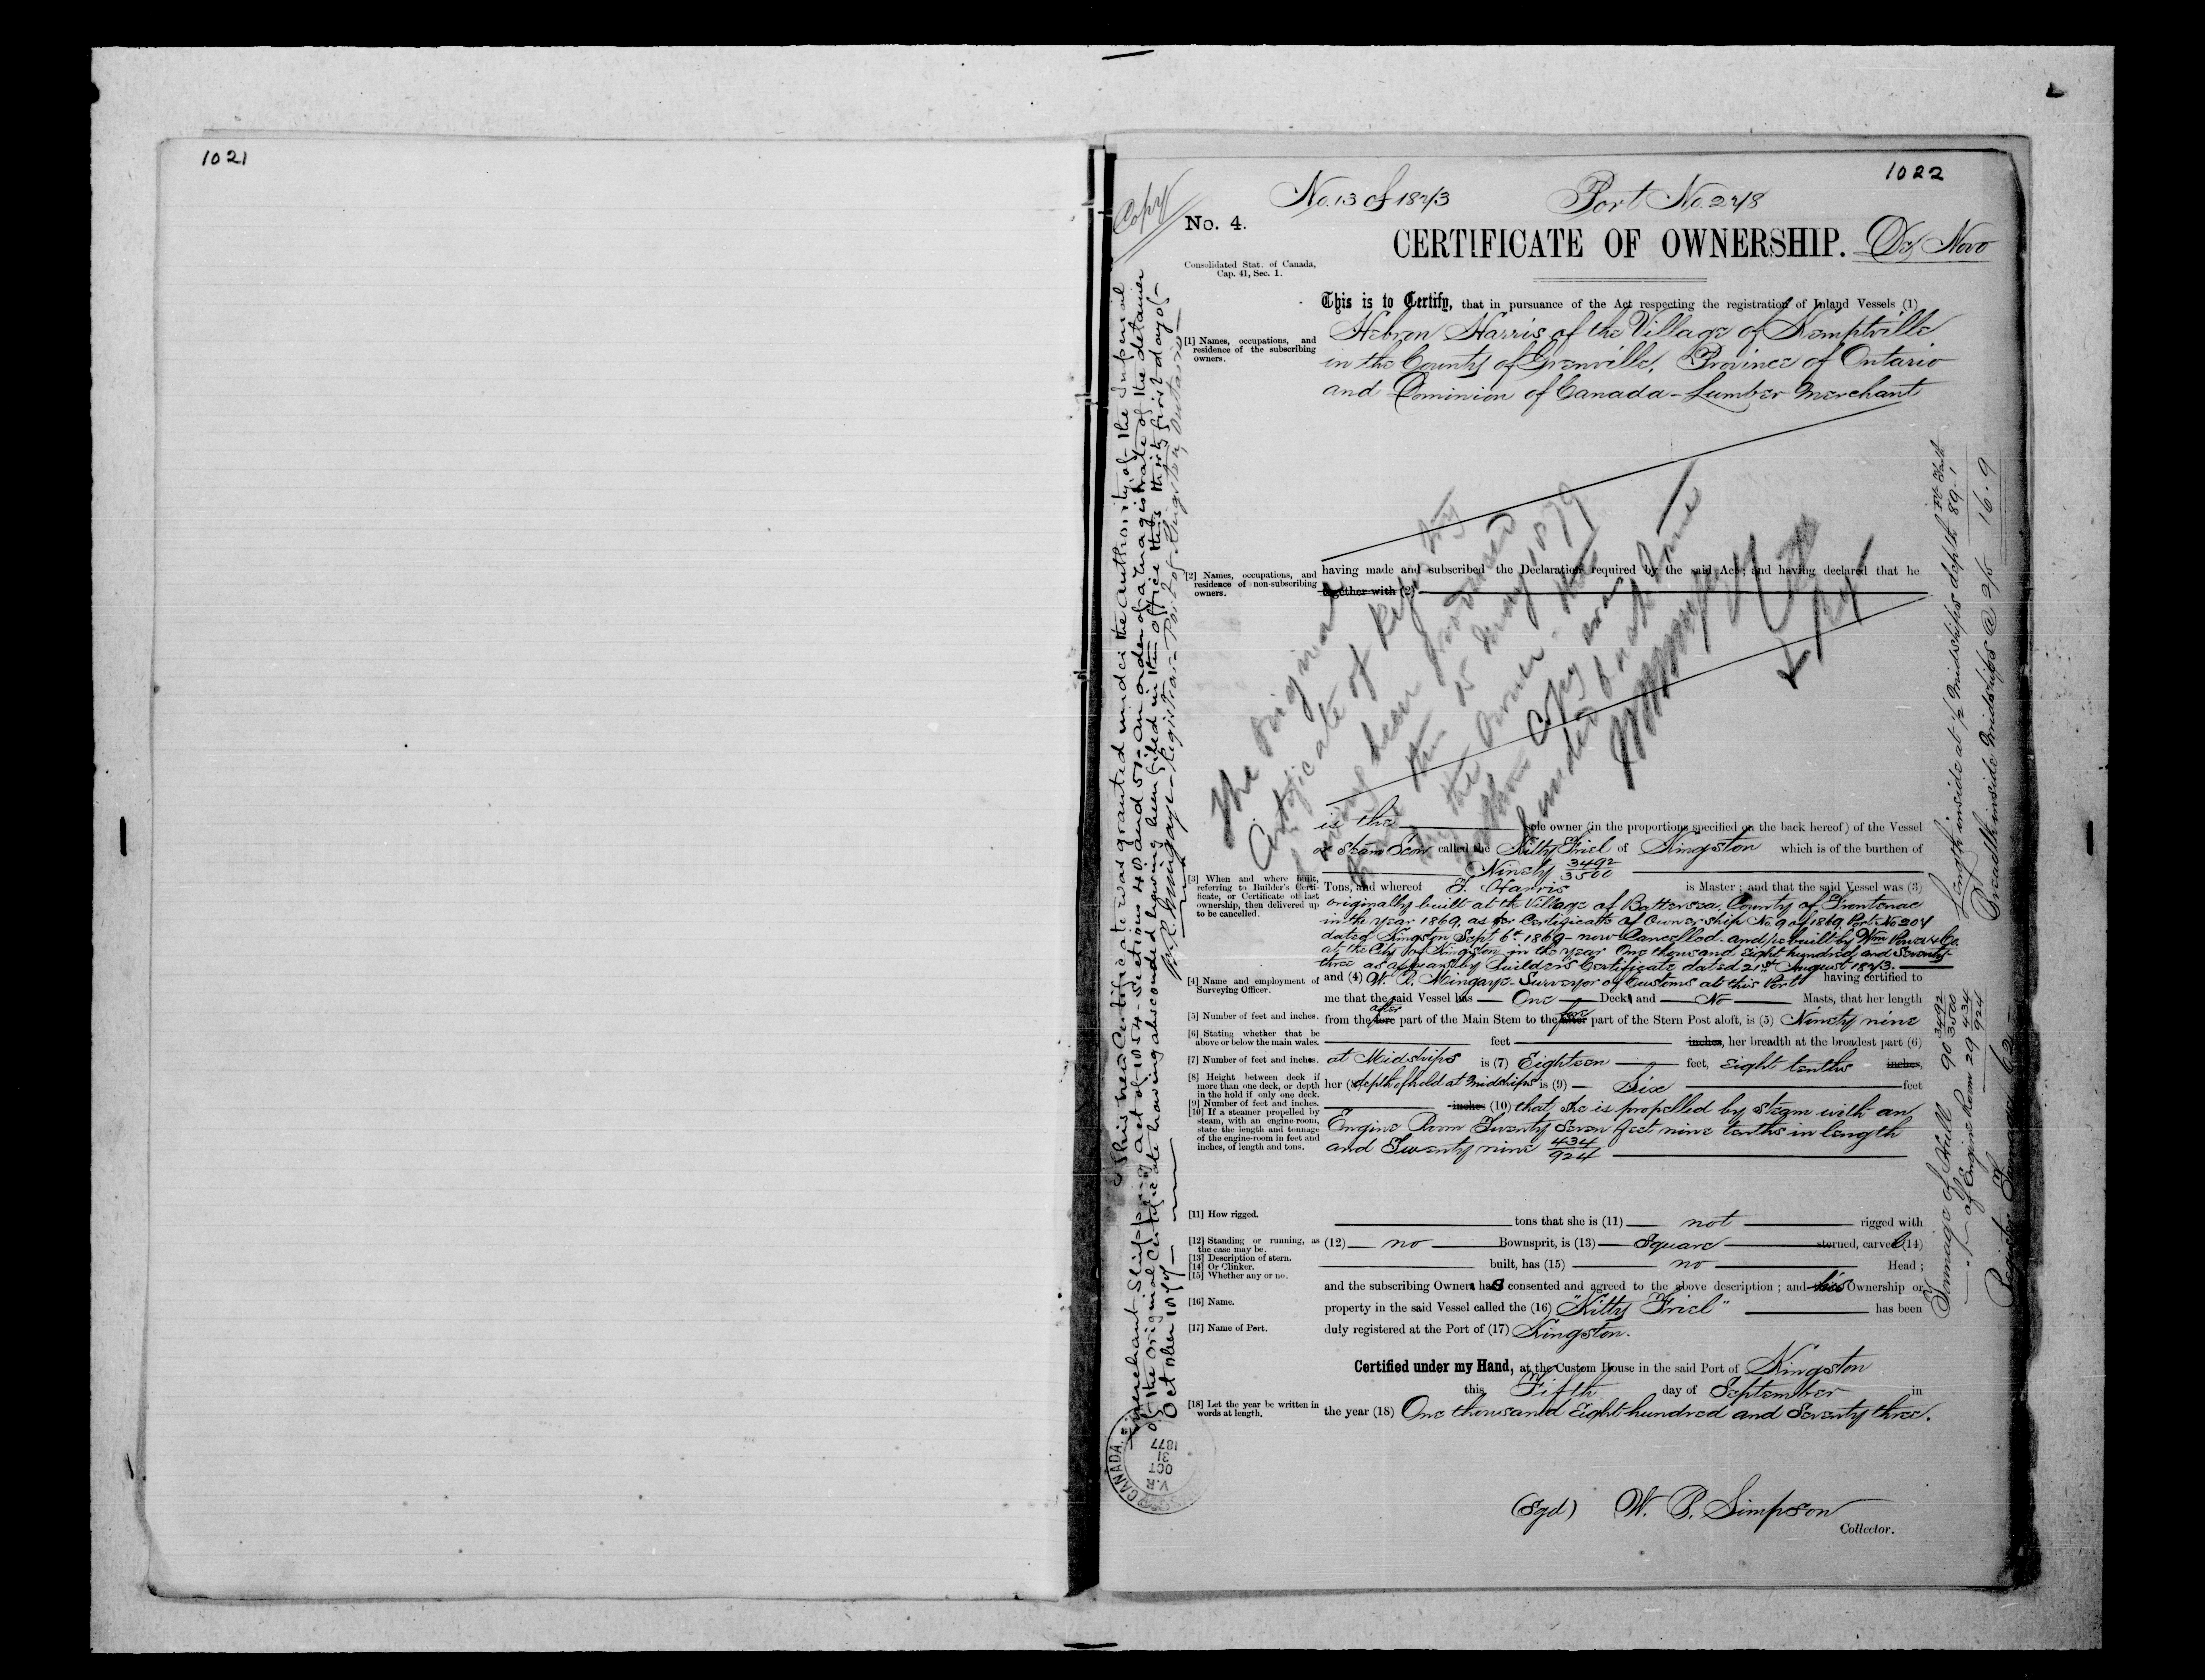 1021
1022
Copy
No. 13 of 1873 Port No. 278
No. 4.
CERTIFICATE OF OWNERSHIP. De Novo
Consolidated Stat. of Canada,
Cap. 41, Sec. 1.
This is to Certify, that in pursuance of the Act respecting the registration of Inland Vessels (1)
[1] Names, occupations, and
residence of the subscribing
owners.
Hebron Harris of the Village of Kemptville
in the County of Grenville, Province of Ontario
and Dominion of Canada - Lumber Merchant
having made and subscribed the Declaration required by the said Act; and having declared that he
[2] Names, occupations, and
residence of non-subscribing
owners.
together with (2)
The original
Certificate of Registry
having been produced
this 15 May 1879
by the owner - the
Copy was
handed back
is the sole owner (in the proportions specified on the back hereof) of the Vessel
or Steam Scow called the Kitty Friel of Kingston which is of the burthen of
Ninety 3492/3500
[3] When and where built,
referring to Builder's Certi-
ficate, or Certificate of last
ownership, then delivered up
to be cancelled.
Tons, and whereof T. Harris is Master; and that the said Vessel was (3)
originally built at the Village of Battersea, County of Frontenac
in the year 1869, as per Certificate of Ownership No. 9 of 1869, Port No 204
dated Kingston Sept 6th 1869 - now Cancelled - and rebuilt by Wm Power & Co.
at the City of Kingston in the year One thousand Eight hundred and Seventy-
three as appears by Builders Certificate dated 21st August 1873.
[4] Name and employment of
Surveying Officer.
and (4) W. R. Mingaye - Surveyor of Customs at this Port having certified to
me that the said Vessel has One Deck and No Masts, that her length
[5] Number of feet and inches.
from the after part of the Main Stem to the fore part of the Stern Post aloft, is (5) Ninety nine
[6] Stating whether that be
above or below the main wales.
feet inches, her breadth at the broadest part (6)
[7] Number of feet and inches.
at Midships is (7) Eighteen feet, Eight tenths inches,
[8] Height between deck if
more than one deck, or depth
in the hold if only one deck.
her (8) depth of hold at Midships is (9) Six feet
[9] Number of feet and inches.
inches (10) that she is propelled by Steam with an
[10] If a steamer propelled by
steam, with an engine-room,
state the length and tonnage
of the engine-room in feet and
inches, of length and tons.
Engine Room Twenty Seven feet nine tenths in length
and Twenty nine 434/924
[11] How rigged.
tons that she is (11) not rigged with
[12] Standing or running, as
the case may be.
(12) no Bownsprit, is (13) Square sterned, carvel (14)
[13] Description of stern.
[14] Or Clinker.
[15] Whether any or no.
built, has (15) no Head;
and the subscribing Owner has consented and agreed to the above description; and his Ownership or
[16] Name.
property in the said Vessel called the (16) "Kitty Friel" has been
[17] Name of Port.
duly registered at the Port of (17) Kingston.
Certified under my Hand, at the Custom House in the said Port of Kingston
this Fifth day of September in
[18] Let the year be written in
words at length.
the year (18) One thousand Eight hundred and Seventy three.
(Sgd) W. B. Simpson
Collector.
This new Certificate was granted under the authority of the Imperial
Merchant Shipping Act of 1854 - Sections 48 and 51 - an order of a Magistrate of the detainer
of the original Certificate having absconded having been filed in this office this thirty first day of
October 1877
W. R. Mingaye - Registrar - Port of Kingston, Ontario
CANADA
V.R
OCT
31
1877
Length inside at ½ Midships depth 89.1
Breadth inside Midships @ 2/5 16.9
Tonnage of Hull 90 3492/3500
of Engine Room 29 434/924
Register Tonnage 62